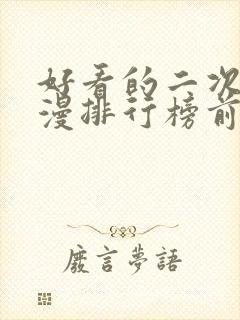 好看的二次
漫排行榜前
废言夢語